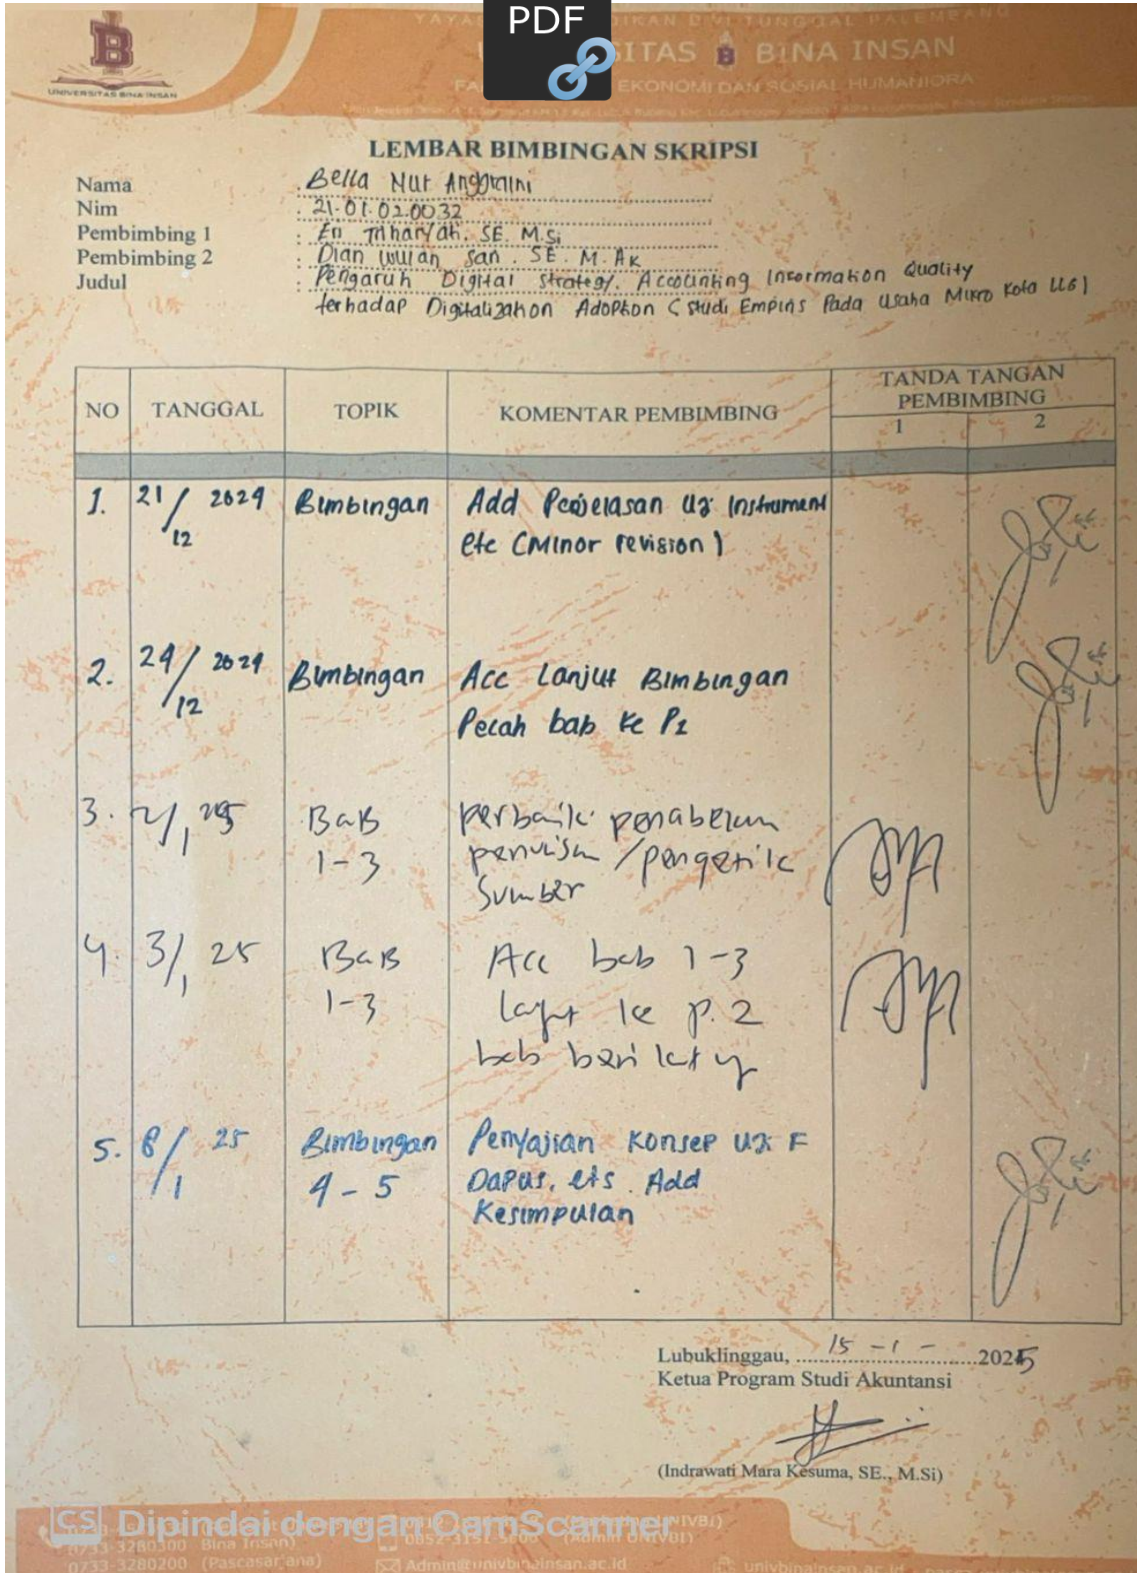 PDF
YAYAS DIKAN DWI TUNGGAL PALEMBANG
SITAS BINA INSAN
FA EKONOMI DAN SOSIAL HUMANIORA
UNIVERSITAS BINA INSAN
LEMBAR BIMBINGAN SKRIPSI
Nama : Bella Nur Anggraini
Nim : 21.01.02.0032
Pembimbing 1 : En Triharyati, SE. M.Si
Pembimbing 2 : Dian Wulan Sari . SE. M. AK
Judul : Pengaruh Digital strategy, Accounting Information Quality
terhadap Digitalization Adoption (Studi Empiris Pada Usaha Mikro Kota LLG)
NO TANGGAL TOPIK KOMENTAR PEMBIMBING TANDA TANGAN PEMBIMBING
1 2
1. 21/12 2024 Bimbingan Add Penjelasan Uji Instrument
etc (Minor revision)
2. 24/12 2024 Bimbingan Acc Lanjut Bimbingan
Pecah bab ke P1
3. 2/1 25 BaB perbaiki
1-3 penulisan /
Sumber
4. 3/1 25 BaB Acc bab 1-3
1-3 Lanjut ke p. 2
bab
5. 8/1 25 Bimbingan Penyajian Konsep Uji F
4-5 Dapus, ets. Add
Kesimpulan
Lubuklinggau, 15 - 1 - 2025
Ketua Program Studi Akuntansi
(Indrawati Mara Kesuma, SE., M.Si)
CS Dipindai dengan CamScanner
0733-3280300 Bina Insan) (Admin UNIVBI)
0733-3280200 (Pascasarjana) Admin@univbinainsan.ac.id univbinainsan.ac.id